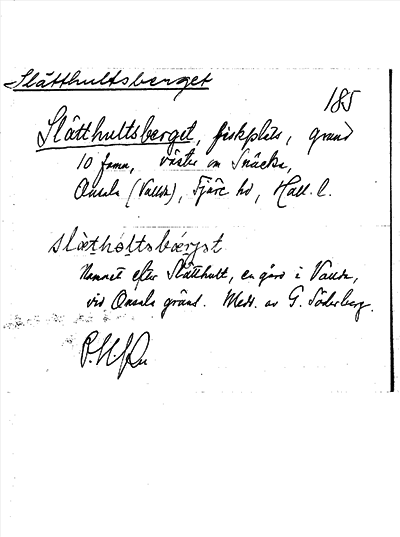 Slätthultsberget
185
Slätthultsberget, fiskplats, grund
10 famn, väster om Snäcka,
Onsala (Vallda), Fjäre hd, Hall. l.
slætholtsbærjət
Namnet efter Slätthult, en gård i Vallda,
vid Onsala gräns. Medd. av G. Söderberg.